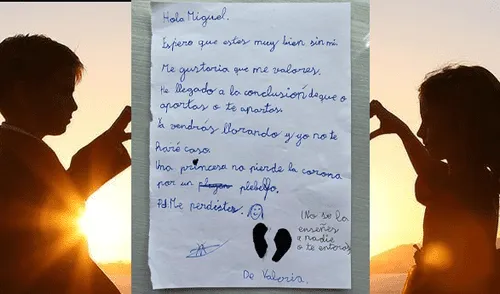 Hola Miguel.
Espero que estes muy bien sin mi.
Me gustaria que me valores.
He llegado a la conclusión de que o
aportas o te apartas.
Ya vendrás llorando y yo no te
haré caso.
Una princesa no pierde la corona
por un plebello.
Pd: Me perdistes.
¡No se la
enseñes
a nadie
o te enteras!
De Valoria.